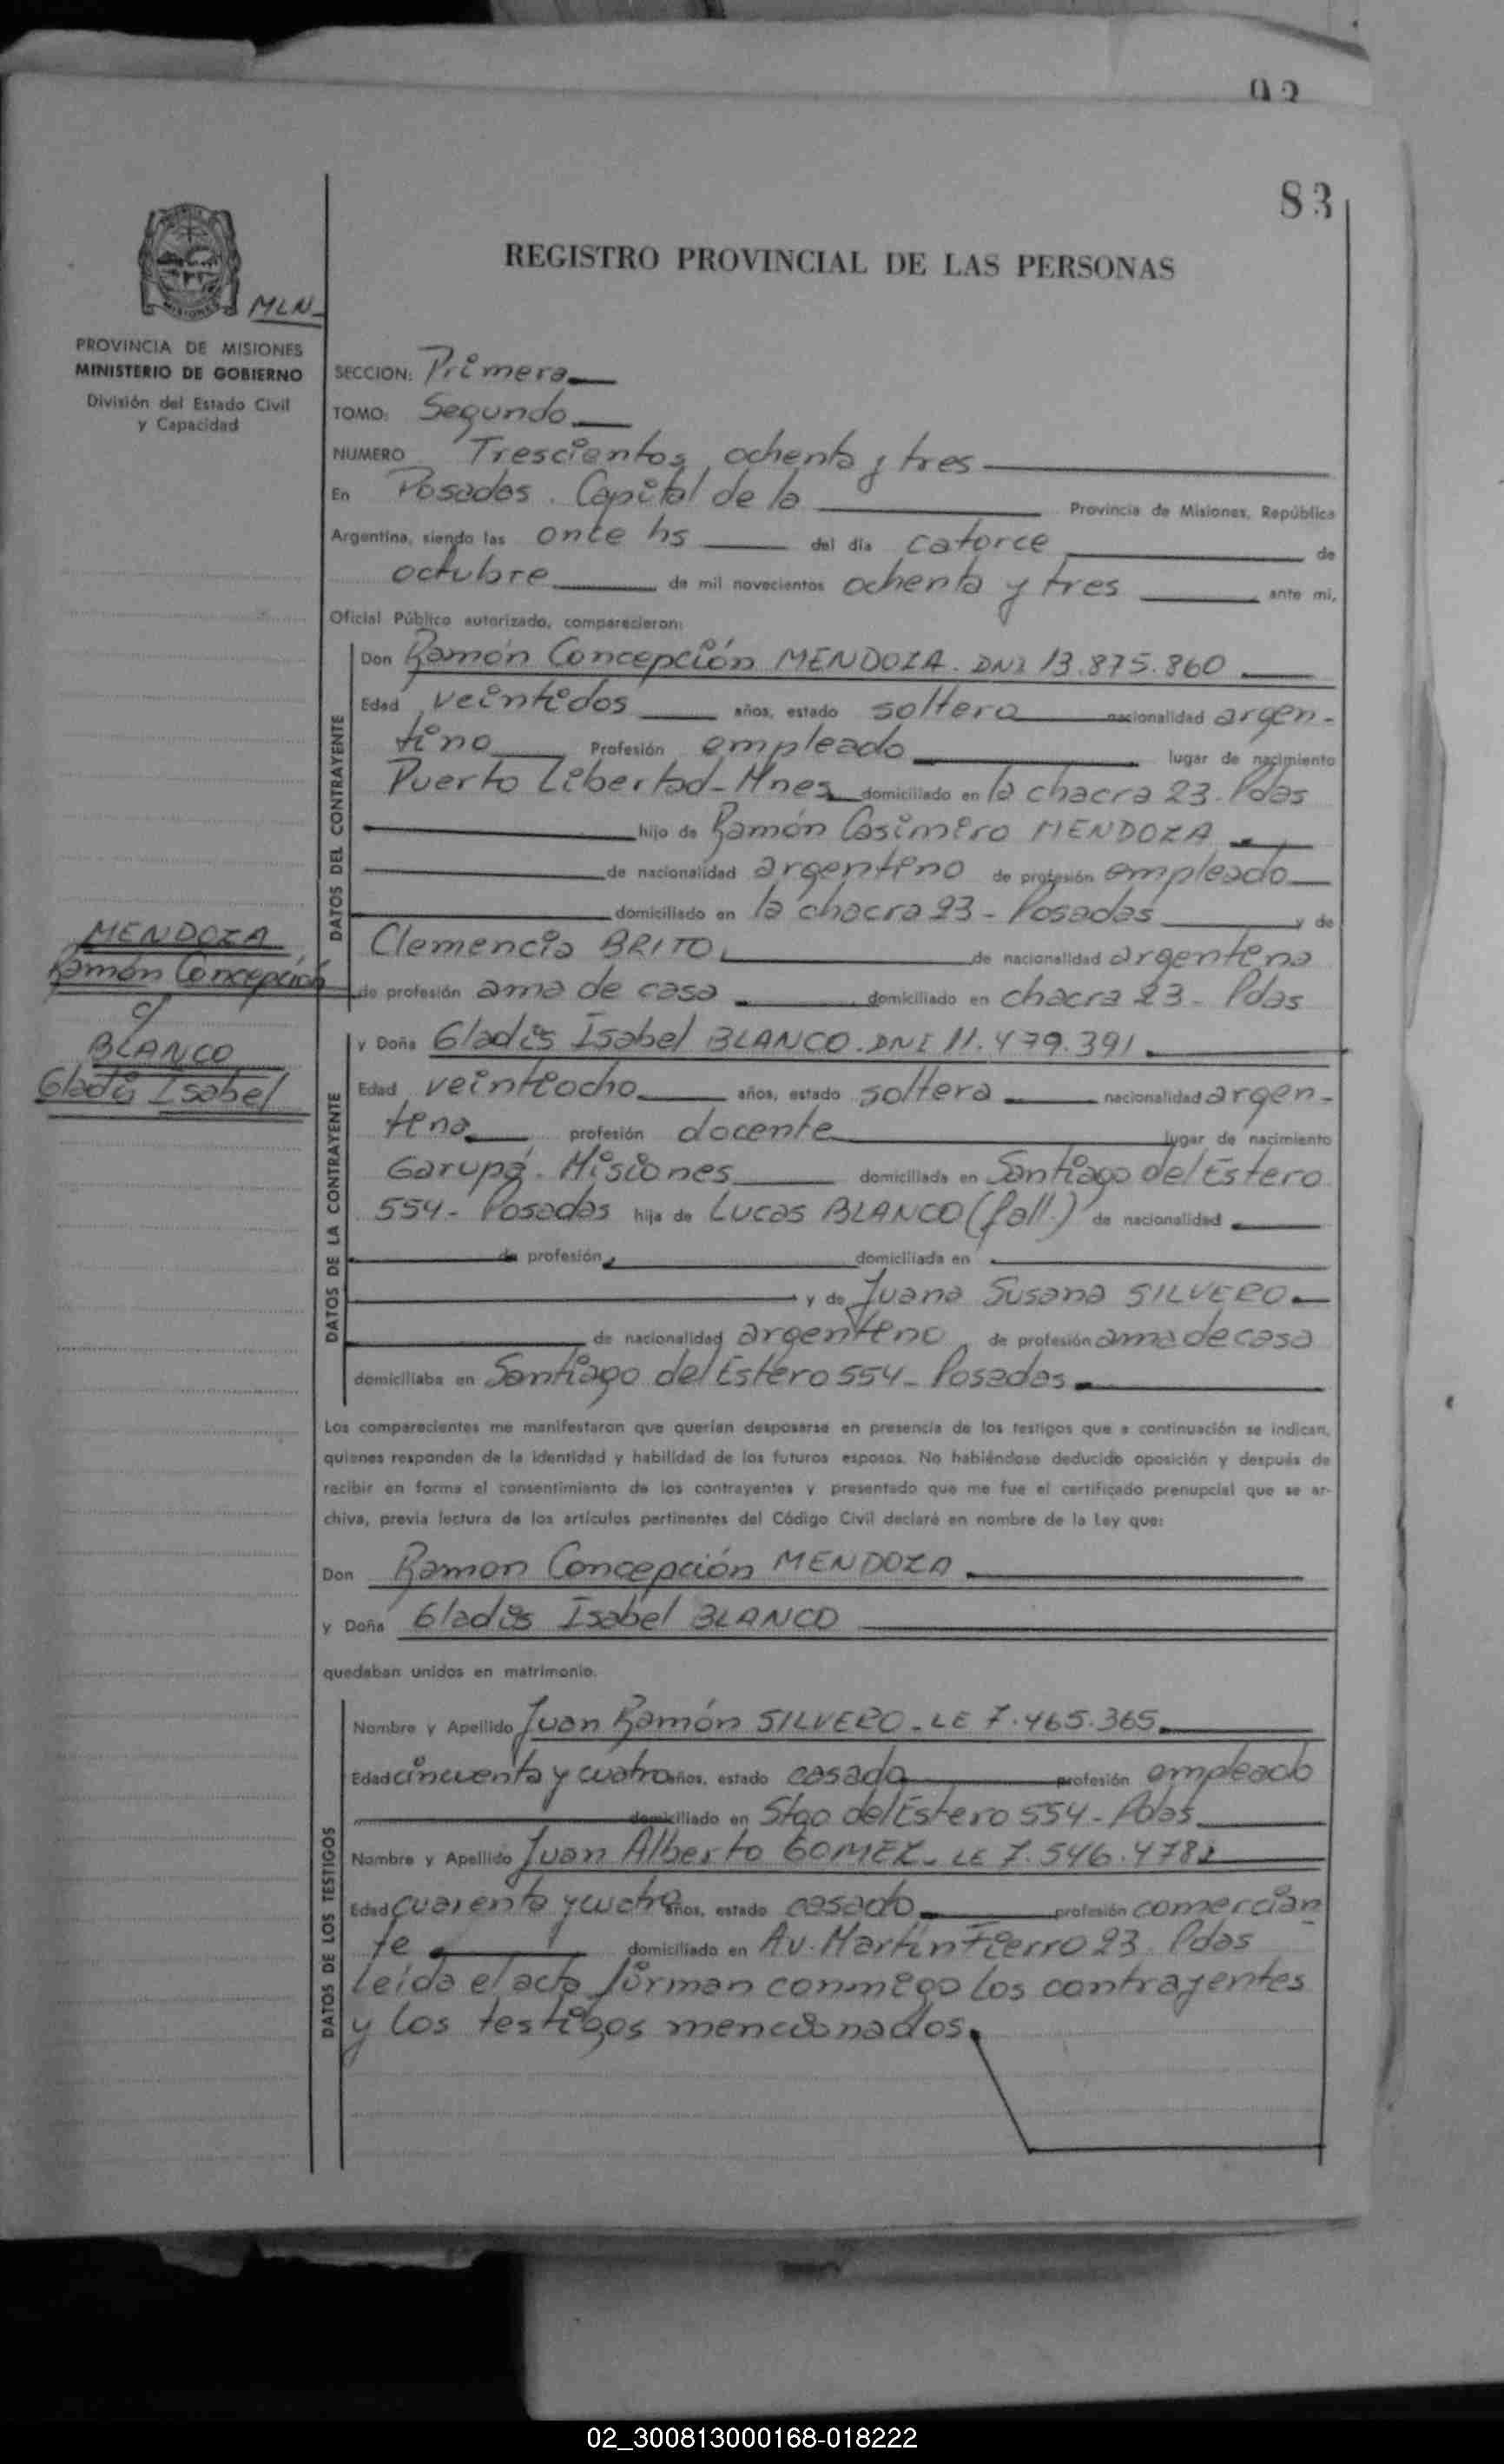 83
REGISTRO PROVINCIAL DE LAS PERSONAS
MISIONES
MLN
PROVINCIA DE MISIONES
MINISTERIO DE GOBIERNO
División del Estado Civil
y Capacidad
SECCION: Primera
TOMO: Segundo
NUMERO Trescientos ochenta y tres
En Posadas. Capital de la Provincia de Misiones, República
Argentina, siendo las once hs del día catorce de
octubre de mil novecientos ochenta y tres ante mi,
Oficial Público autorizado, comparecieron:
DATOS DEL CONTRAYENTE
Don Ramón Concepción MENDOZA. DNI 13.875.860
Edad veintidos años, estado soltero nacionalidad argen-
tino Profesión empleado lugar de nacimiento
Puerto Libertad-Mnes domiciliado en la chacra 23. Pdas
hijo de Ramón Casimiro MENDOZA
de nacionalidad argentino de profesión empleado
domiciliado en la chacra 23 - Posadas y de
Clemencia BRITO de nacionalidad argentina
de profesión ama de casa domiciliado en chacra 23 - Pdas
MENDOZA
Ramón Concepción
c/
BLANCO
Gladis Isabel
DATOS DE LA CONTRAYENTE
y Doña Gladis Isabel BLANCO. DNI 11.479.391
Edad veintiocho años, estado soltera nacionalidad argen-
tina profesión docente lugar de nacimiento
Garupá. Misiones domiciliada en Santiago del Estero
554 - Posadas hija de Lucas BLANCO (fall.) de nacionalidad
de profesión domiciliada en
y de Juana Susana SILVERO
de nacionalidad argentino de profesión ama de casa
domiciliaba en Santiago del Estero 554 - Posadas
Los comparecientes me manifestaron que querían desposarse en presencia de los testigos que a continuación se indican,
quienes responden de la identidad y habilidad de los futuros esposos. No habiéndose deducido oposición y después de
recibir en forma el consentimiento de los contrayentes y presentado que me fue el certificado prenupcial que se ar-
chiva, previa lectura de los artículos pertinentes del Código Civil declaré en nombre de la Ley que:
Don Ramon Concepción MENDOZA
y Doña Gladis Isabel BLANCO
quedaban unidos en matrimonio.
DATOS DE LOS TESTIGOS
Nombre y Apellido Juan Ramón SILVERO - LE 7.465.365
Edad cincuenta y cuatro años, estado casado profesión empleado
domiciliado en Stgo del Estero 554 - Pdas
Nombre y Apellido Juan Alberto GOMEZ - LE 7.546.478
Edad cuarenta y cuatro años, estado casado profesión comercian
te domiciliado en Av. Martín Fierro 23. Pdas
leída el acta firman conmigo los contrayentes
y los testigos mencionados.
02_300813000168-018222